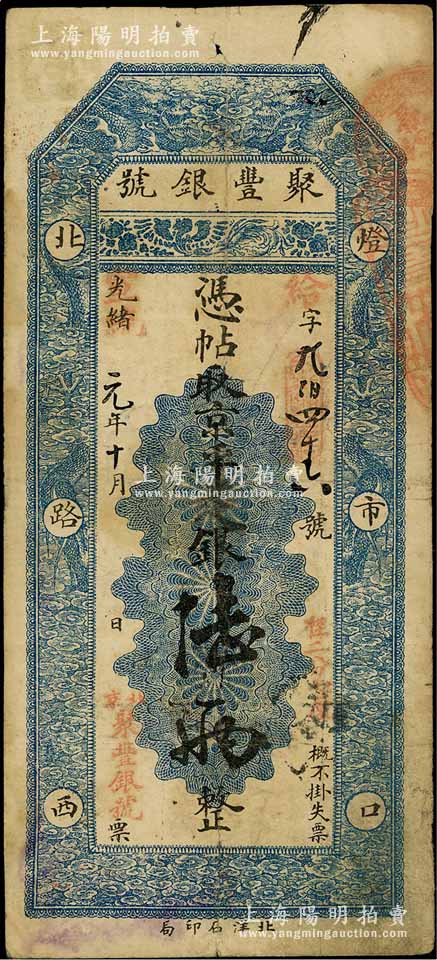 上海陽明拍賣
www.yangmingauction.com
聚豐銀號
燈市口
北路西
字 九百四十 號
憑帖取京平足銀陸兩整
光緒
元年十月
日
票
給
北京
聚豐銀號
概不掛失票
上海陽明拍賣
www.yangmingauction.com
北洋石印局
上海陽明拍賣
www.yangmingauction.com